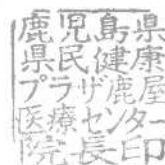 鹿児島県
県民健康
プラザ鹿屋
医療センター
院長印